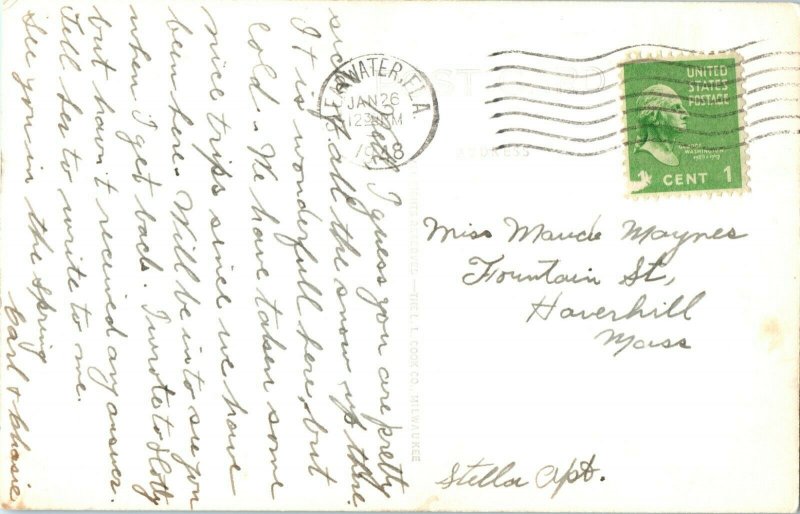 Well I guess you are pretty
sick of all the snow up there.
It is wonderfull here, but
cold. We have taken some
nice trips since we have
been here. Will be in to see you
when I get back. I wrote to Dotty
but havn't received any answer.
Tell her to write to me.
See you in the Spring
Carl &
CLEARWATER, FLA.
JAN 26
12 PM
1948
POST CARD
ADDRESS
THE L. L. COOK CO., MILWAUKEE
UNITED
STATES
POSTAGE
GEORGE
WASHINGTON
1 CENT 1
Miss Maude Maynes
Fountain St,
Haverhill
Mass
Stella Apt.